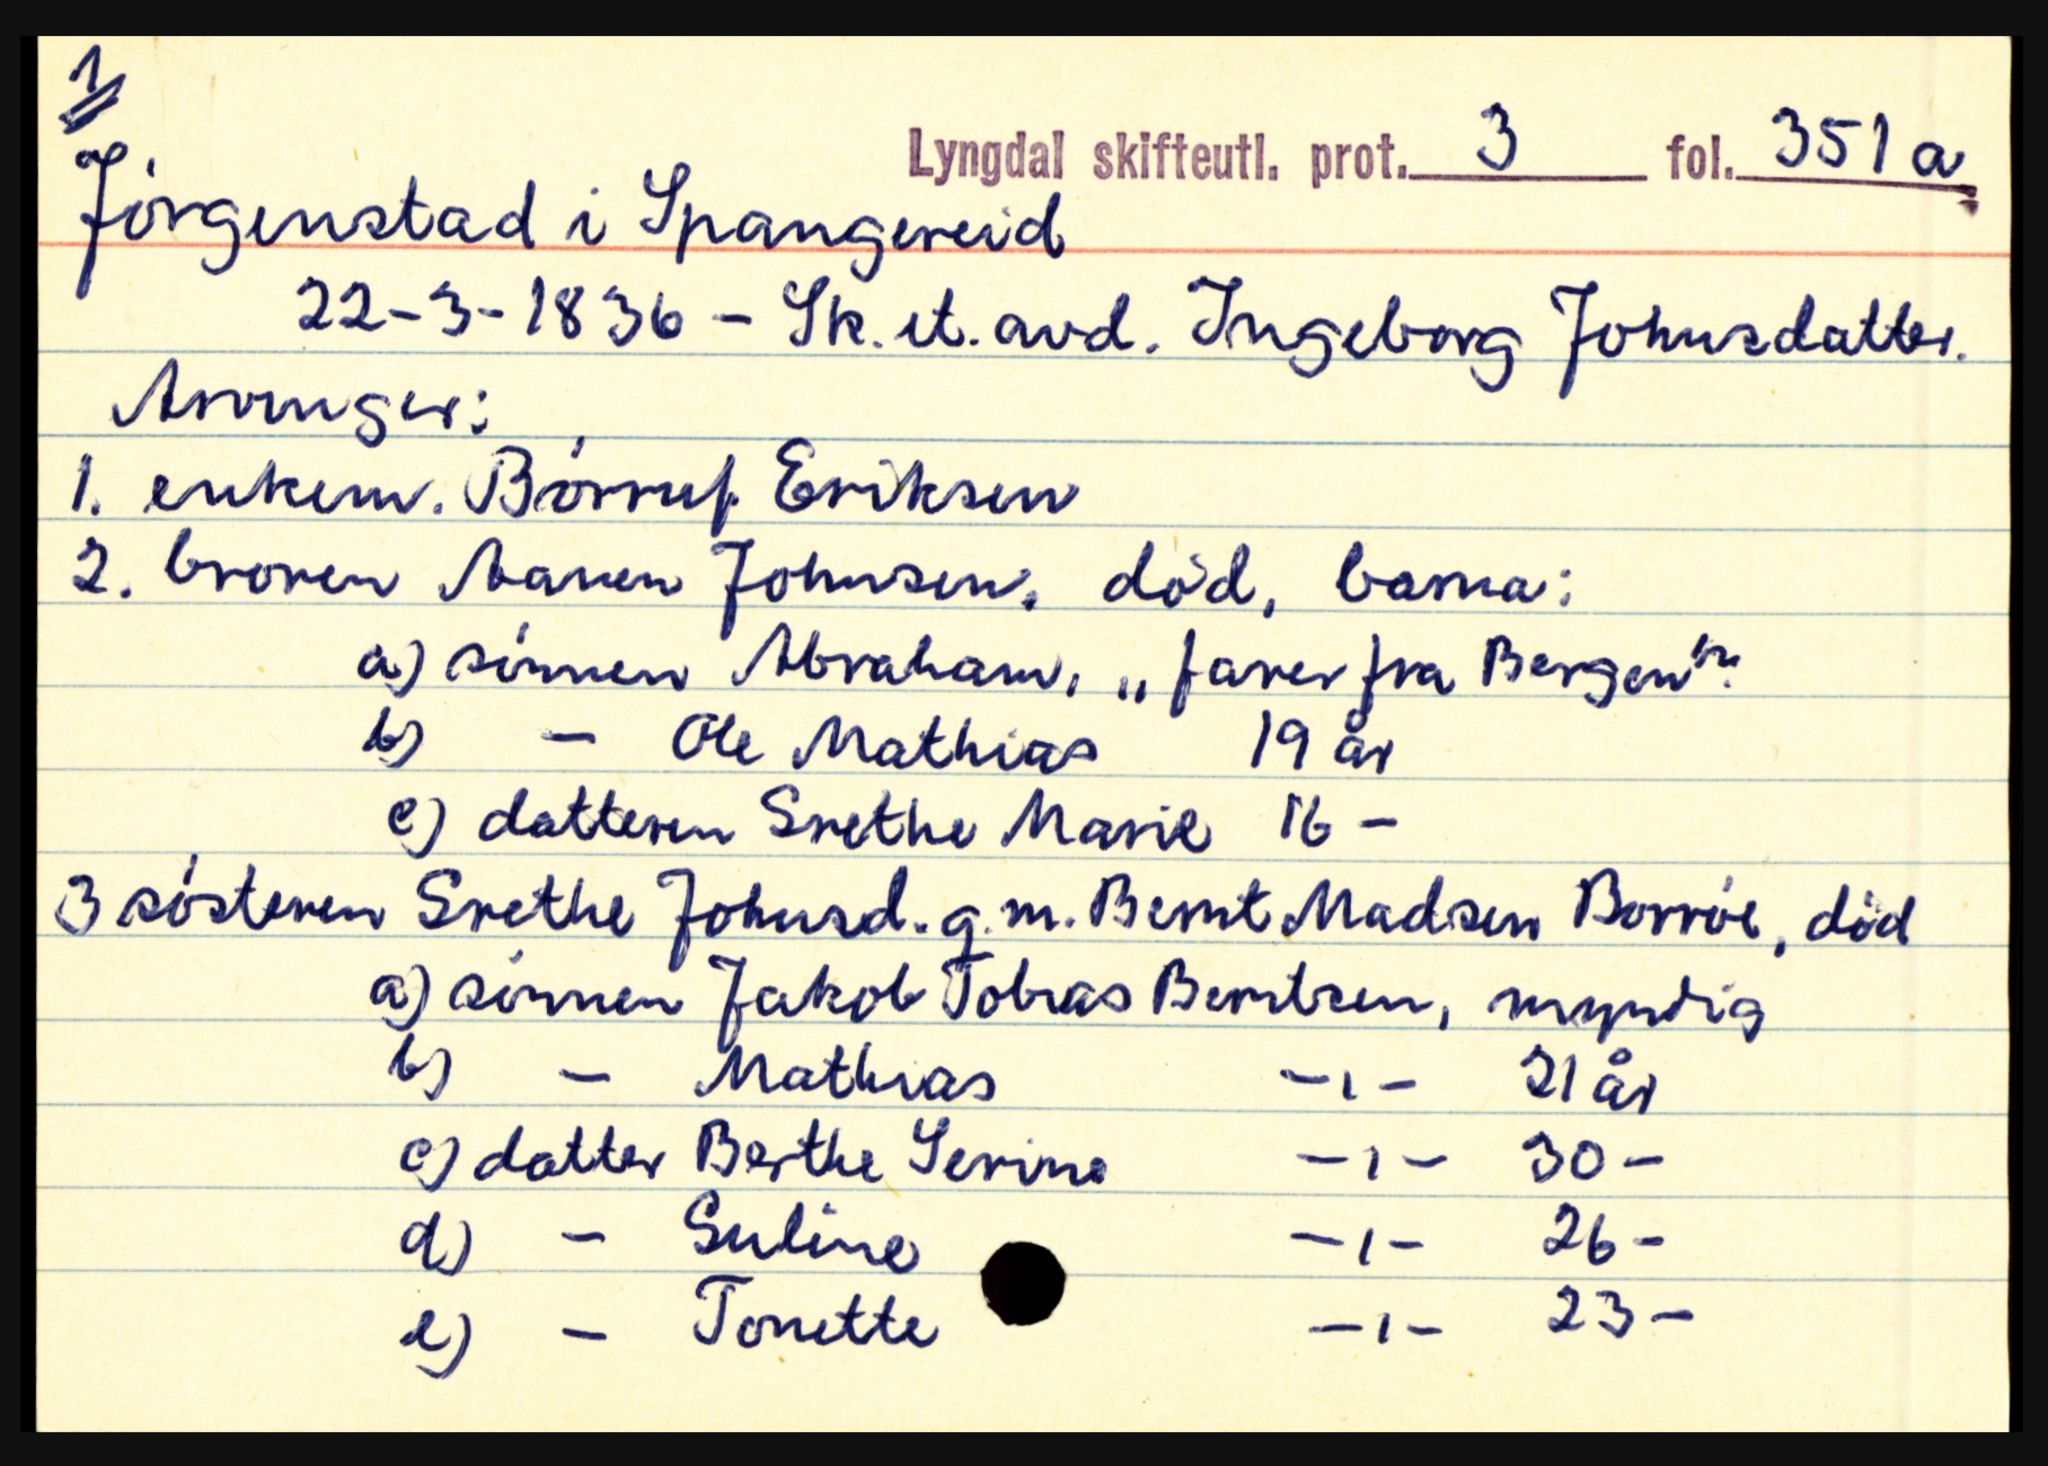 1
Lyngdal skifteutl. prot. 3 fol. 351 a
Jórgenstad i Spangereid
22-3-1836 - Sk. et. avd. Ingeborg Johnsdatter.
Arvinger:
1. enkem. Børruf Eriksen
2. broren Aanen Johnsen, død, barna:
a) sønnen Abraham, „farer fra Bergen"
b) - Ole Mathias 19 år
c) datteren Grethe Marie 16 -
3 søsteren Grethe Johnsd. g.m. Bernt Madsen Borrøe, død
a) sønnen Jakob Tobias Berntsen, myndig
b) - Mathias -ı- 21 år
c) datter Berthe Serine -ı- 30 -
d) - Guline -ı- 26 -
e) - Tonette -ı- 23 -